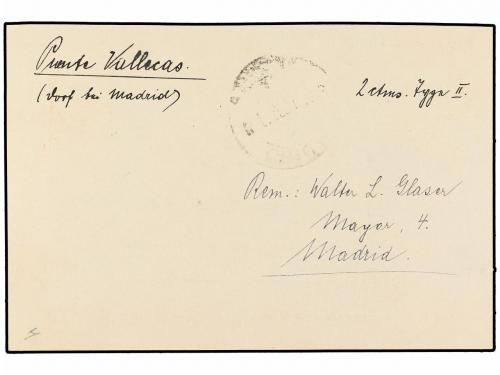 Puente Vallecas.
(Dorf bei Madrid)
2 ctms. Type II.
Rem.: Walter L. Glaser
Mayor, 4.
Madrid.